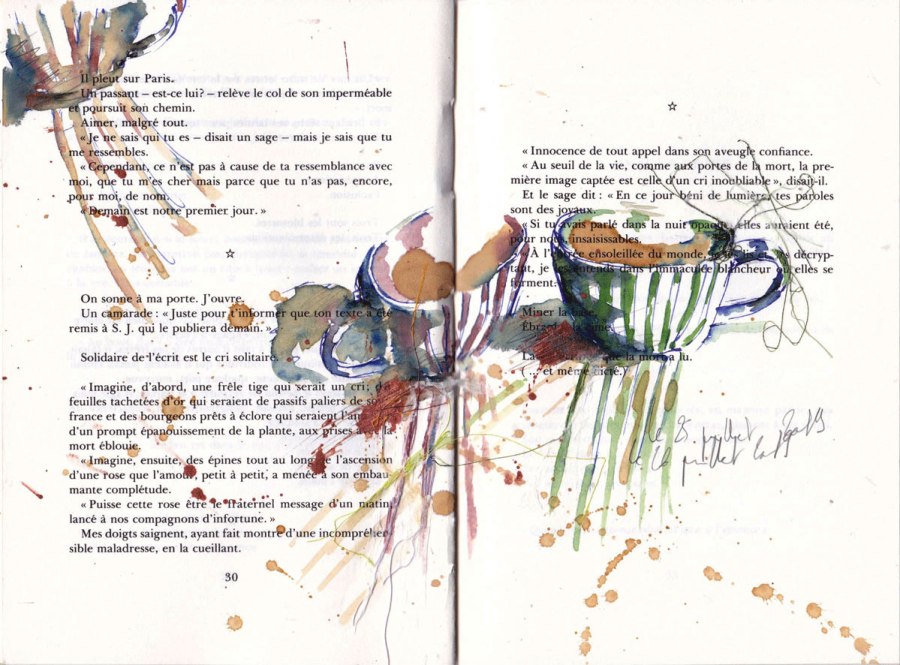 Il pleut sur Paris.
Un passant – est-ce lui? – relève le col de son imperméable
et poursuit son chemin.
Aimer, malgré tout.
« Je ne sais qui tu es – disait un sage – mais je sais que tu
me ressembles.
« Cependant, ce n'est pas à cause de ta ressemblance avec
moi, que tu m'es cher mais parce que tu n'as pas, encore,
pour moi, de nom.
« Demain est notre premier jour. »
☆
On sonne à ma porte. J'ouvre.
Un camarade : « Juste pour t'informer que ton texte a été
remis à S. J. qui le publiera demain. »
Solidaire de l'écrit est le cri solitaire.
« Imagine, d'abord, une frêle tige qui serait un cri; de
feuilles tachetées d'or qui seraient de passifs paliers de
france et des bourgeons prêts à éclore qui seraient
d'un prompt épanouissement de la plante, aux prises avec la
mort éblouie.
« Imagine, ensuite, des épines tout au long de l'ascension
d'une rose que l'amour, petit à petit, a menée à son embau-
mante complétude.
« Puisse cette rose être le fraternel message d'un matin
lancé à nos compagnons d'infortune. »
Mes doigts saignent, ayant fait montre d'une incompréhen-
sible maladresse, en la cueillant.
30
☆
« Innocence de tout appel dans son aveugle confiance.
« Au seuil de la vie, comme aux portes de la mort, la pre-
mière image captée est celle d'un cri inoubliable », disait-il.
Et le sage dit : « En ce jour béni de lumière, tes paroles
sont des joyaux.
« Si tu avais parlé dans la nuit opaque, elles auraient été,
pour nous, insaisissables.
« À l'orée ensoleillée du monde, je les lis et les décryp-
tant, je les entends dans l'immaculée blancheur où elles se
forment.
Miner la base.
la cime.
que la mort a lu.
(... et même dicté.)
le 8 juillet